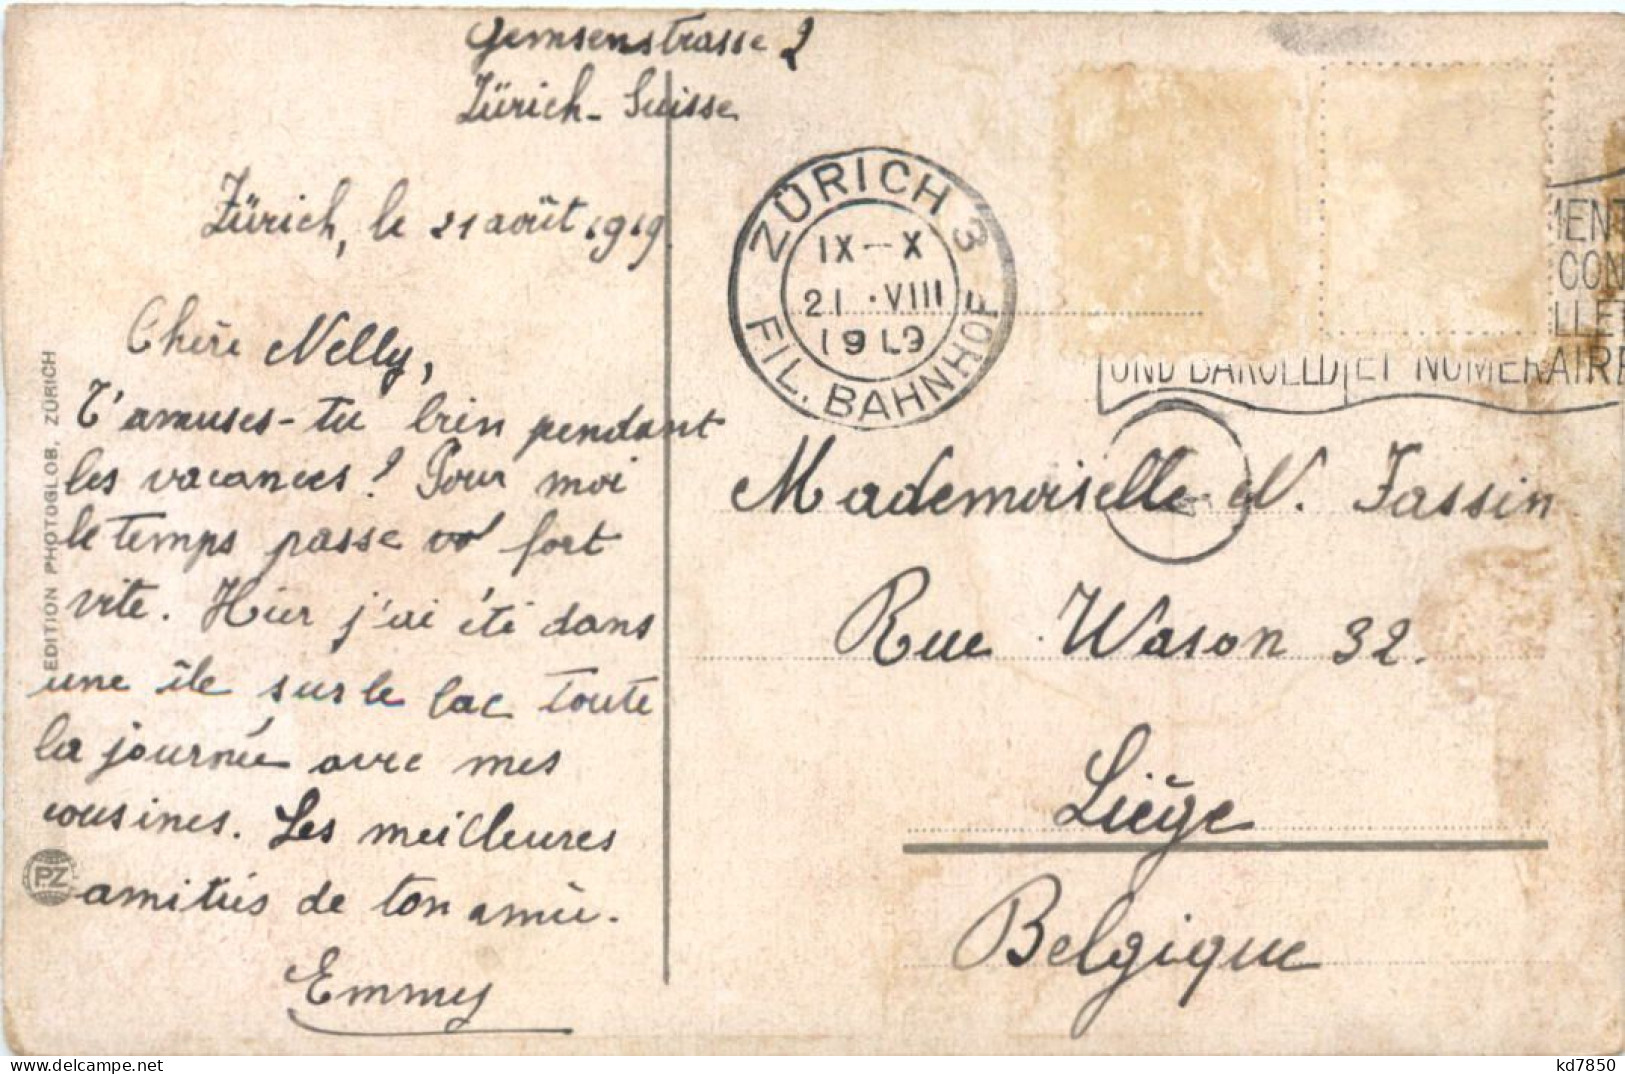 Gemsenstrasse 2
Zürich - Suisse
Zürich, le 21 août 1919.
Chère Nelly,
T'amuses-tu bien pendant
les vacances? Pour moi
le temps passe fort
vite. Hier j'ai été dans
une île sur le lac toute
la journée avec mes
cousines. Les meilleures
amitiés de ton amie.
Emmy
EDITION PHOTOGLOB, ZÜRICH
PZ
ZÜRICH 3
IX-X
21.VIII
1919
FIL. BAHNHOF
CON
UND BARGELD ET NUMÉRAIRE
Mademoiselle N. Fassin
Rue Wason 32.
Liège
Belgique
kd7850